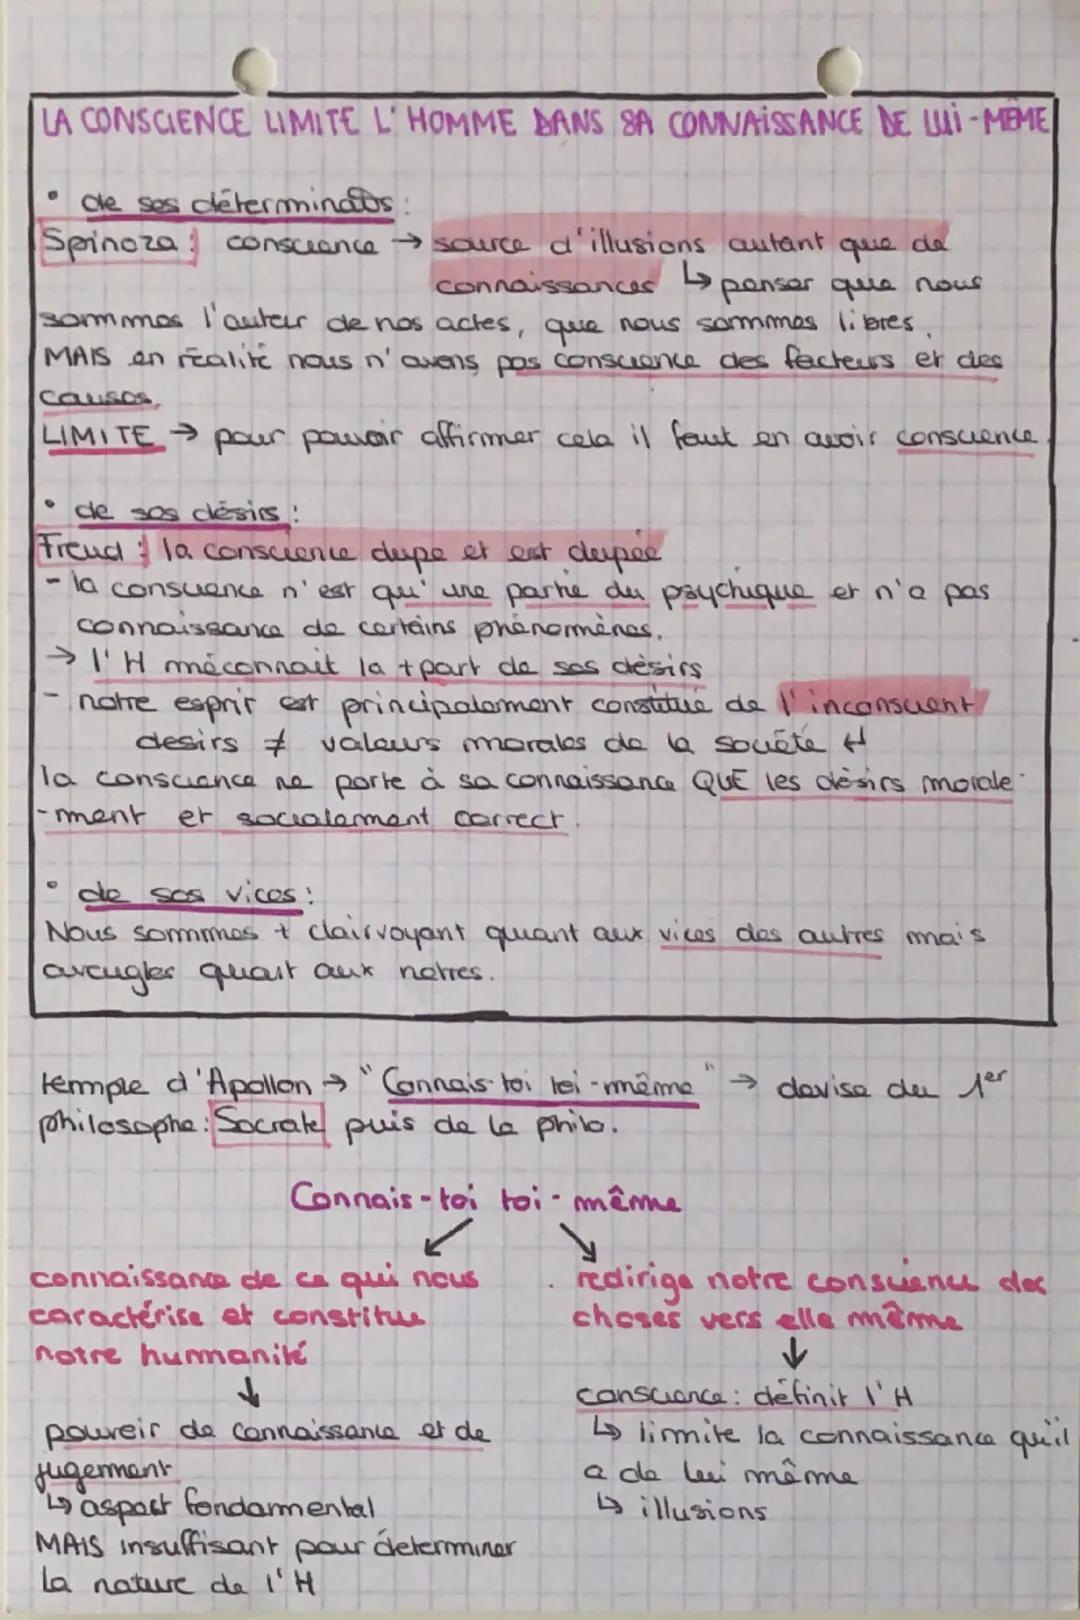 LA CONSCIENCE LIMITE L'HOMME DANS SA CONNAISSANCE DE LUI-MÊME
• de ses déterminats :
Spinoza : conscience → source d'illusions autant que de
connaissances ↳ penser que nous
sommes l'auteur de nos actes, que nous sommes libres.
MAIS en réalité nous n'avons pas conscience des facteurs et des
causes.
LIMITE → pour pouvoir affirmer cela il faut en avoir conscience.
• de ses désirs :
Freud : la conscience dupe et est dupée
- la conscience n'est qu'une partie du psychique et n'a pas
connaissance de certains phénomènes.
→ l'H méconnait la +part de ses désirs
- notre esprit est principalement constitué de l'inconscient
desirs ≠ valeurs morales de la société
la conscience ne porte à sa connaissance QUE les désirs morale
-ment et socialement correct.
• de ses vices :
Nous sommes + clairvoyant quant aux vices des autres mais
aveugles quant aux notres.
temple d'Apollon → "Connais-toi toi-même" → devise du 1er
philosophe : Socrate puis de la philo.
Connais-toi toi-même
connaissance de ce qui nous
caractérise et constitue
notre humanité
↓
pouvoir de connaissance et de
jugement
↳ aspect fondamental
MAIS insuffisant pour déterminer
la nature de l'H
redirige notre conscience des
choses vers elle même
↓
conscience : définit l'H
↳ limite la connaissance qu'il
a de lui même
↳ illusions